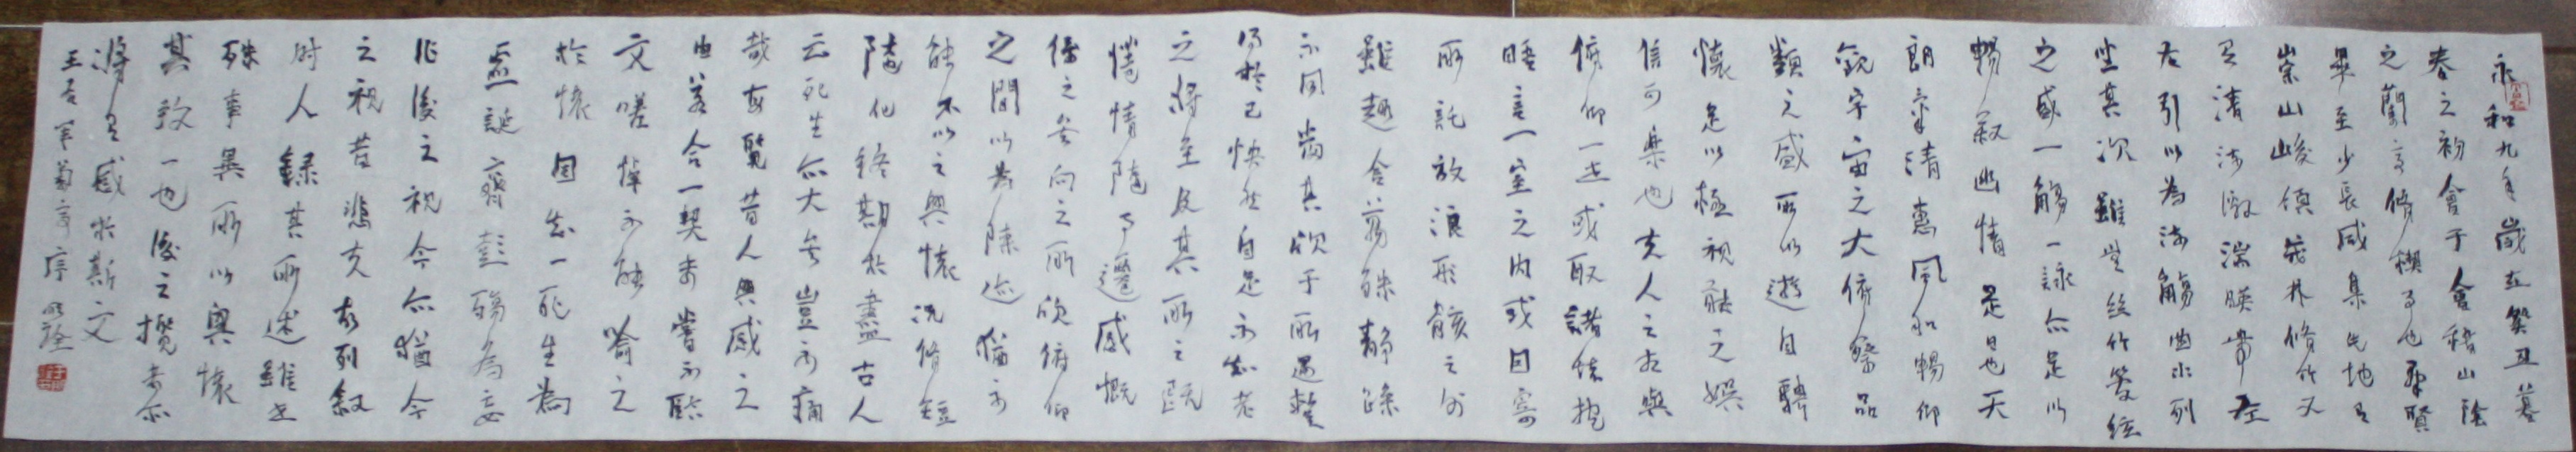 永和九年歲在癸丑暮
春之初會于會稽山陰
之蘭亭脩禊事也群賢
畢至少長咸集此地有
崇山峻領茂林脩竹又
有清流激湍暎帶左
右引以為流觴曲水列
坐其次雖無絲竹管絃
之盛一觴一詠亦足以
暢敘幽情是日也天
朗氣清惠風和暢仰
觀宇宙之大俯察品
類之盛所以遊目騁
懷足以極視聽之娛
信可樂也夫人之相與
俯仰一世或取諸懷抱
晤言一室之内或因寄
所託放浪形骸之外
雖趣舍萬殊靜躁
不同當其欣于所遇暫
得於己快然自足不知老
之將至及其所之既
惓情隨事遷感慨
係之矣向之所欣俯仰
之間以為陳迹猶不
能不以之興懷況脩短
隨化終期於盡古人
云死生亦大矣豈不痛
哉每覽昔人興感之
由若合一契未嘗不臨
文嗟悼不能喻之
於懷固知一死生為
虛誕齊彭殤為妄
作後之視今亦猶今
之視昔悲夫故列敘
時人錄其所述雖世
殊事異所以興懷
其致一也後之攬者亦
將有感於斯文
王右軍蘭亭序 明詮